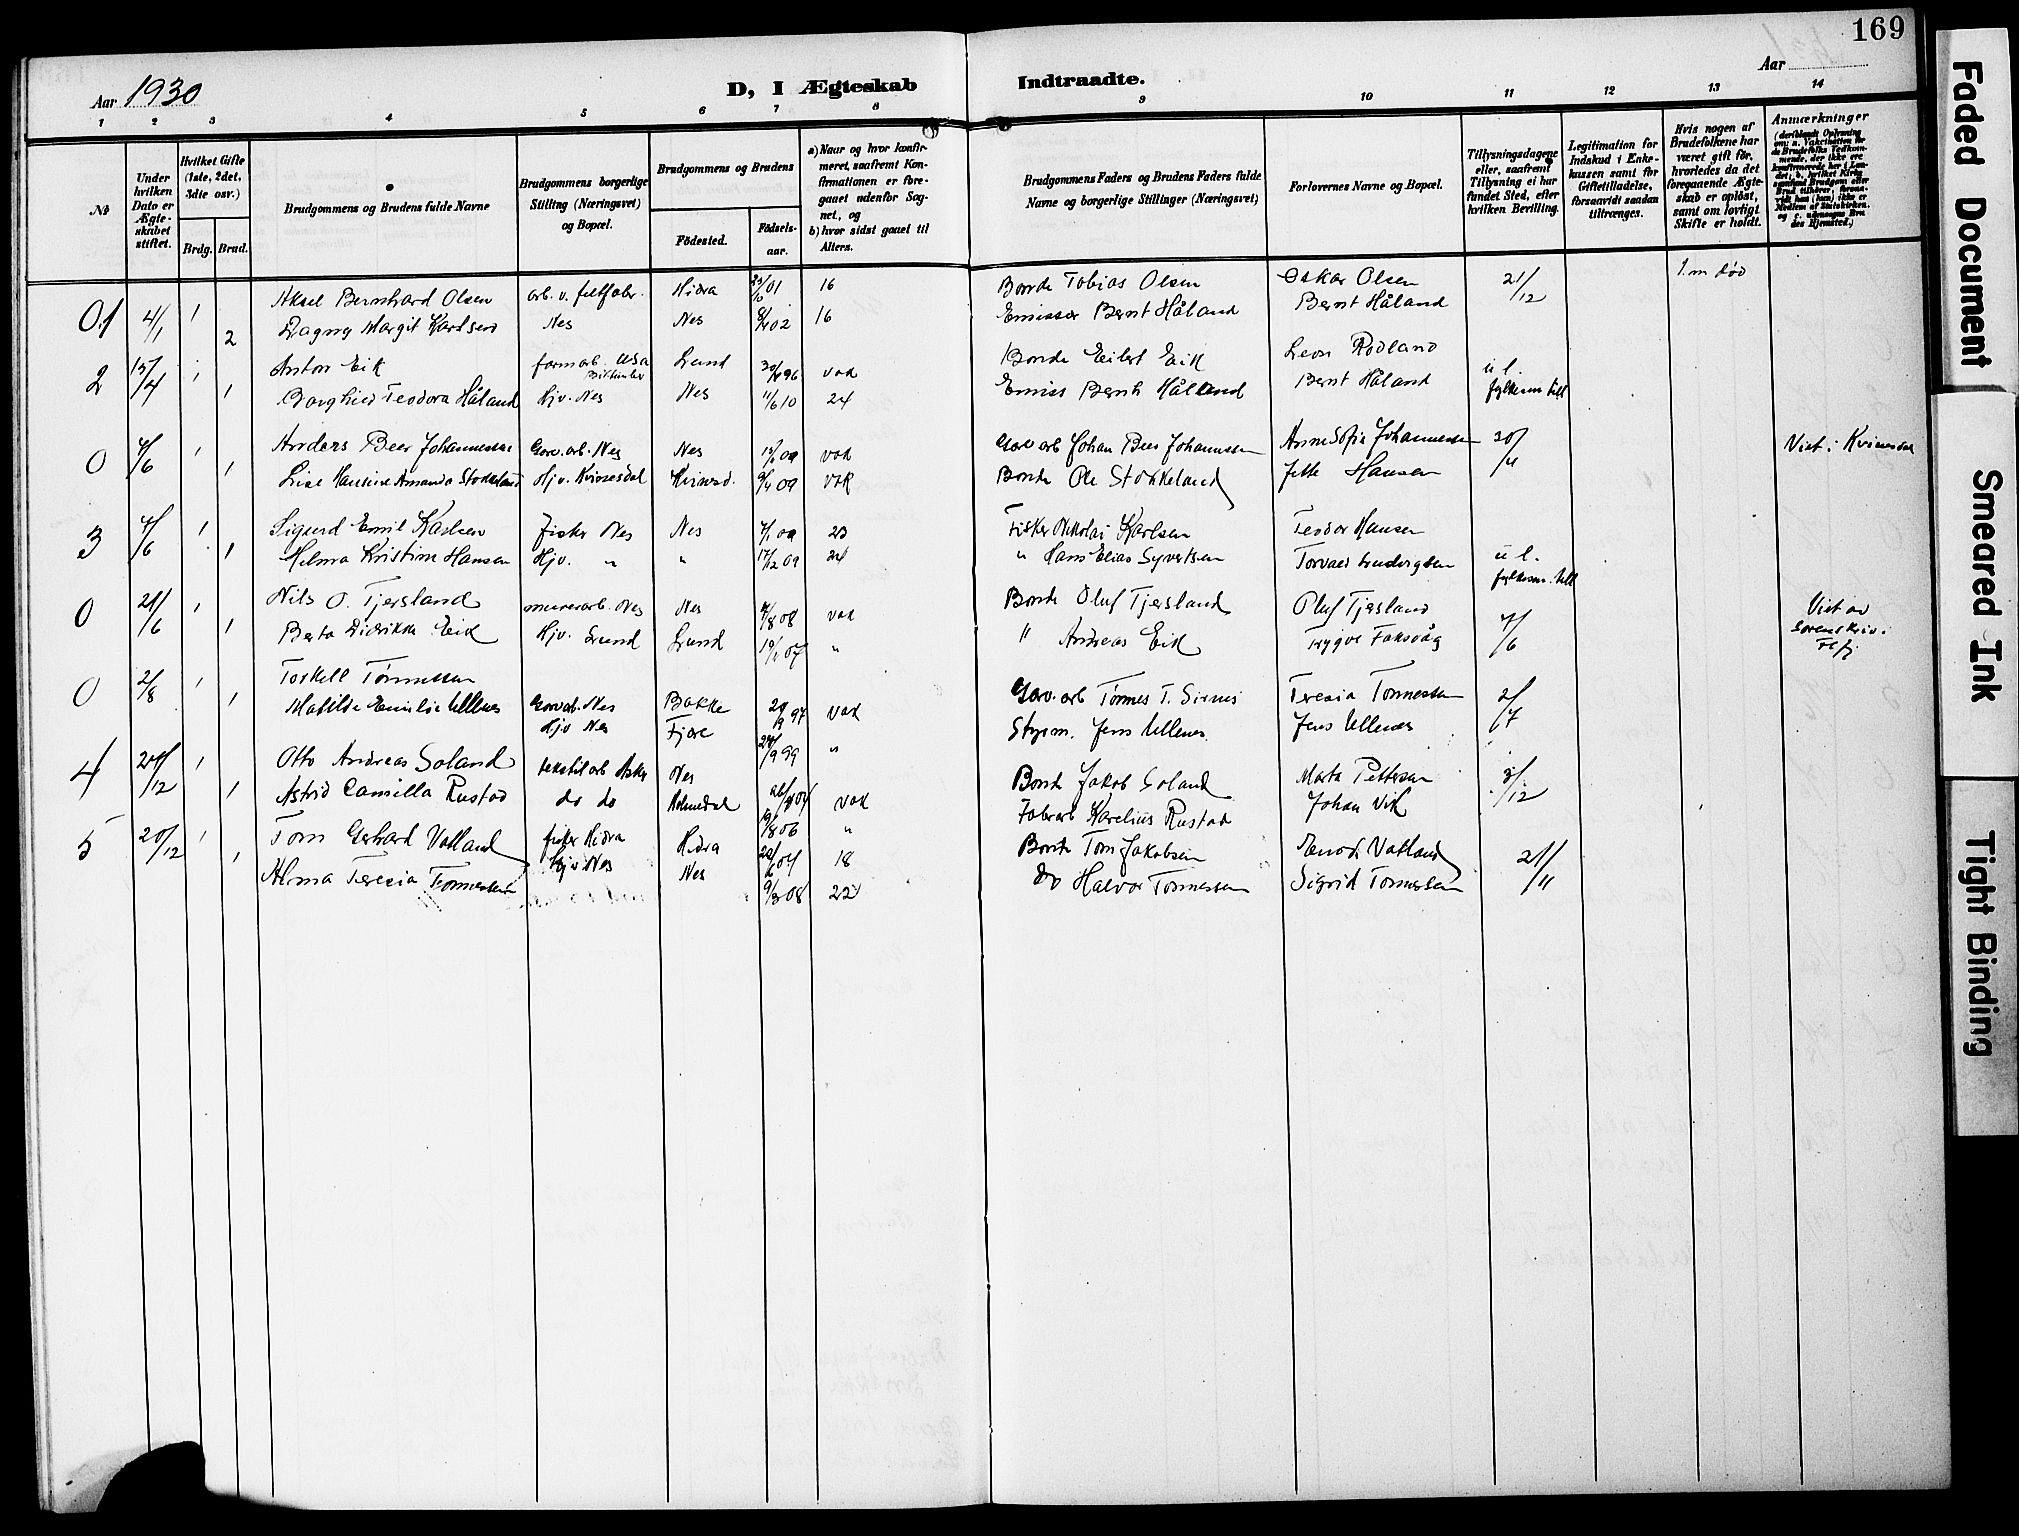 169
Aar 1930
D, I Ægteskab
Indtraadte.
Aar
1 2 3 4 5 6 7 8 9 10 11 12 13 14
No
Under hvilken Dato er Ægteskabet stiftet.
Hvilket Gifte (1ste, 2det, 3die osv.)
Brdg. Brud.
Brudgommens og Brudens fulde Navne
Brudgommens borgerlige Stilling (Næringsvei) og Bopæl.
Brudgommens og Brudens
Födested.
Födselsaar.
a) Naar og hvor konfirmeret, saafremt Konfirmationen er foregaaet udenfor Sognet, og
b) hvor sidst gaaet til Alters.
Brudgommens Faders og Brudens Faders fulde Navne og borgerlige Stillinger (Næringsvei)
Forlovernes Navne og Bopæl.
Tillysningsdagene eller, saafremt Tillysning ei har fundet Sted, efter hvilken Bevilling.
Legitimation for Indskud i Enkekassen samt for Giftetilladelse, forsaavidt saadan tiltrænges.
Hvis nogen af Brudefolkene har været gift för, hvorledes da det foregaaende Ægteskab er oplöst, samt om lovligt Skifte er holdt.
Anmærkninger
01 4/1 1 Aksel Bernhard Olsen arb. v. feltfabr. Hidra 01 16 Bonde Tobias Olsen Oskar Olsen 21/12 1. m død
2 Dagny Margit Karlsen Nes Nes 02 16 Emissær Bernt Håland Bernt Håland
2 15/4 1 Anton Eik farmarb. USA Lund 96 vak Bonde Eilert Eik Leon Rødland u l.
1 Borghild Teodora Håland Hjv. Nes Nes 11/6 10 24 Emiss Bernt Håland Bernt Håland fylkesm till
0 4/6 1 Anders Beer Johannessen Garv.arb. Nes Nes vak Garv arb Johan Beer Johannessen Anne Sofie Johannessen 20/4 Viet i Kvinesdal
1 Lise Hansine Amanda Stokkeland Hjv. Kvinesdal Kvinesd. 09 vak Bonde Ole Stokkeland Hansen
3 4/6 1 Sigurd Emil Karlsen Fisker Nes Nes 23 Fisker Nikolai Karlsen Teodor Hansen
1 Helma Kristine Hansen Hjv. " " 17/12 09 24 " Hans Elias Syvertsen Torvald Ludvigsen u l.
fylkesm. till
0 21/6 1 Nils O. Tjersland murerarb. Nes Nes 08 vak Bonde Oluf Tjersland Oluf Tjersland 7/6 Viet av Sorenskriv. i
1 Berta Didrikke Eik Hjv. Lund Lund 07 " " Andreas Eik Trygve Faksvåg
0 2/8 1 Torkell Tønnessen Garvarb. Nes Bakke 97 vak Garv. arb Tønnes T. Sirnes Teresia Tonnessen 2/7
1 Matilde Emilie Ullenes Hjv Nes 99 " Styrm. Jens Ullenes Jens Ullenes
4 /12 1 Otto Andreas Soland tekstilarb Asker Nes vak Bonde Jakob Soland Marta Pettersen 3/12
1 Astrid Camilla Rustad do do Holmedal 9/8 06 " Fabr.arb Karelius Rustad Johan Vik
5 20/12 1 Tom Gerhard Vatland fisker Hidra Hidra 18 Bonde Tom Jakobsen Vatland 21/11
1 Alma Teresia Tønnessen Hjv Nes Nes 9/3 08 22 do Halvor Tønnessen Sigrid Tønnessen
Faded Document
Smeared Ink
Tight Binding